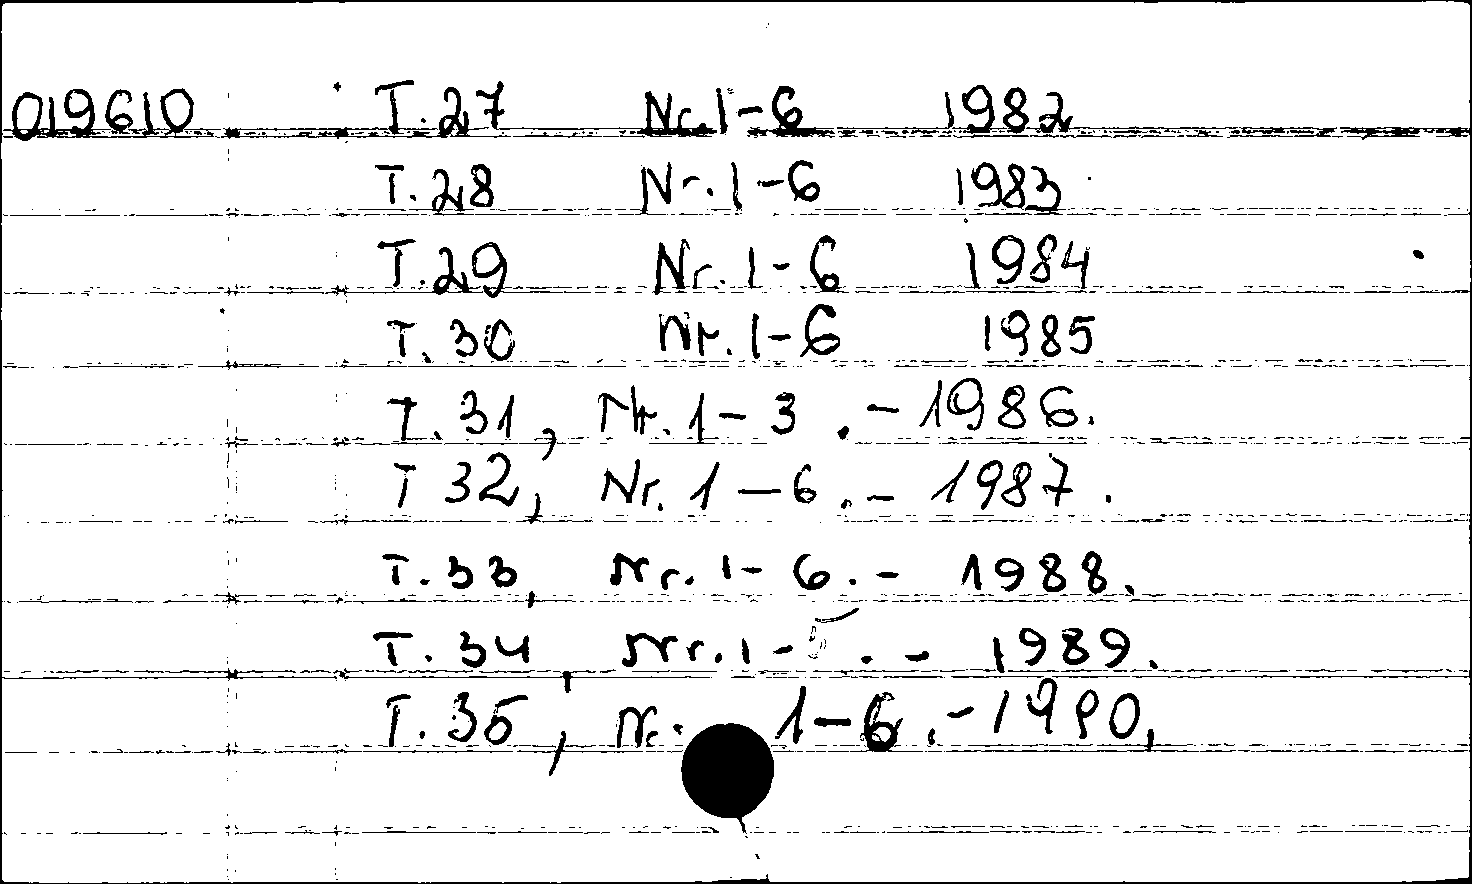 019610 T.27 Nr.1-6 1982
T.28 Nr.1-6 1983
T.29 Nr.1-6 1984
T.30 Nr.1-6 1985
T.31, Nr.1-3.-1986.
T 32, Nr.1-6.-1987.
T.33, Nr.1-6.-1988.
T.34, Nr.1-5.-1989.
T.35, Nr. 1-6.-1990.